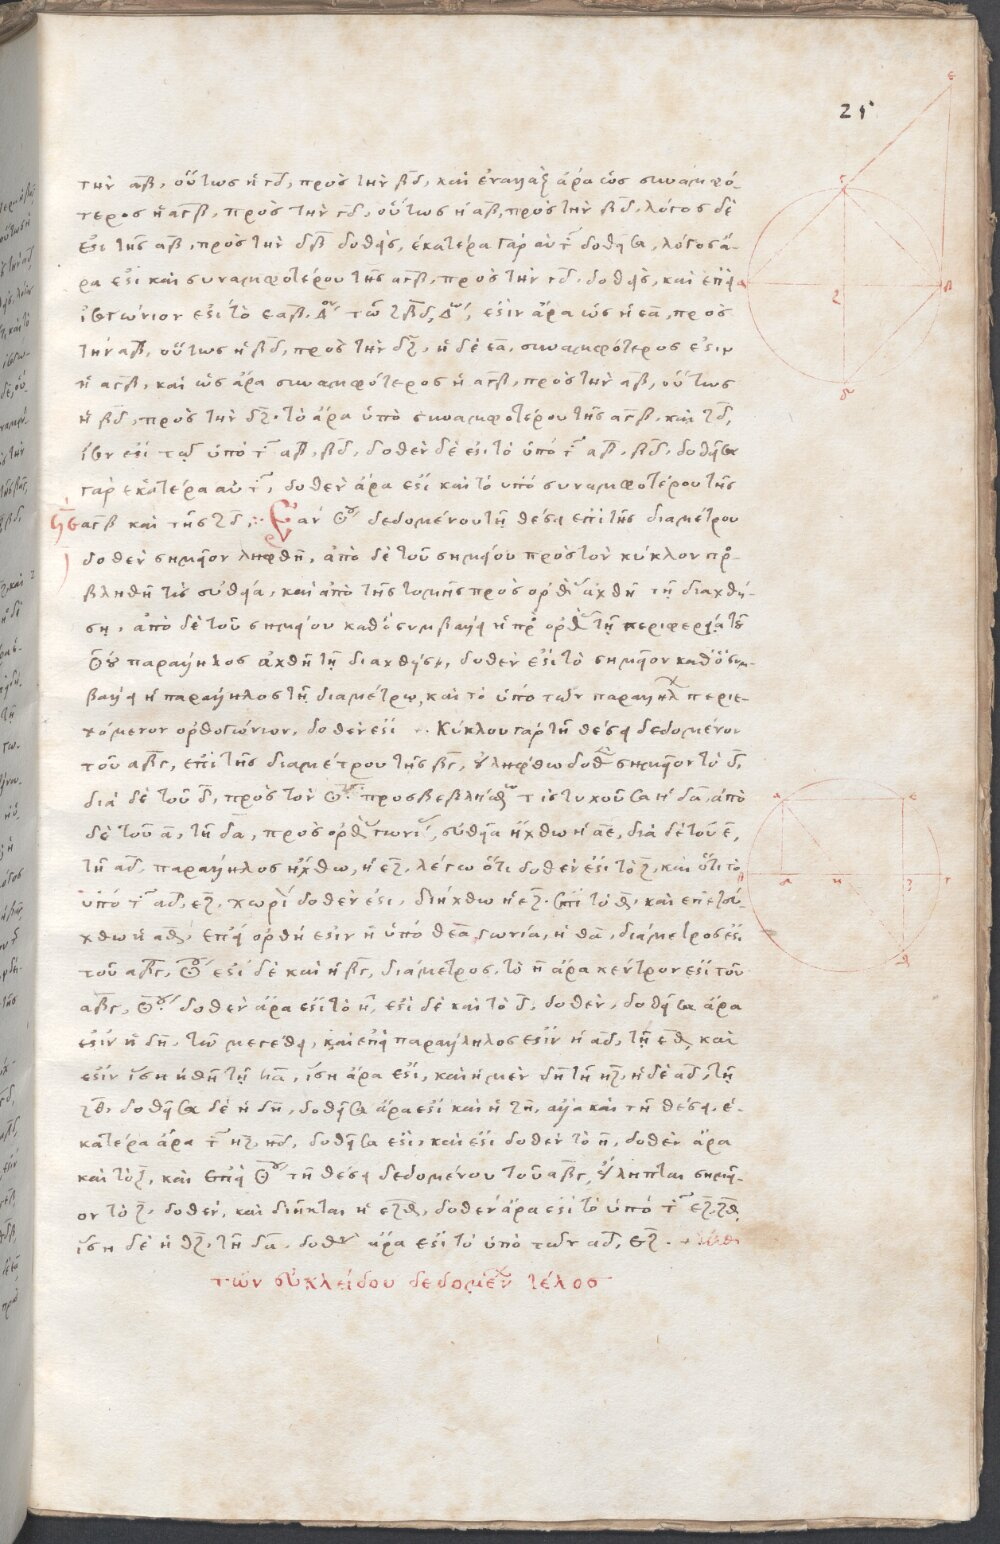 25
τὴν αβ, οὕτως ἡ γδ, πρὸς τὴν βδ, καὶ ἐναλλὰξ ἄρα ὡς συναμφό-
τερος ἡ αγβ, πρὸς τὴν γδ, οὕτως ἡ αβ, πρὸς τὴν βδ, λόγος δὲ
ἐστὶ τῆς αβ, πρὸς τὴν δβ δοθεὶς, ἑκατέρα γὰρ αὐτ δοθεῖσα, λόγος ἄ-
ρα ἐστὶ καὶ συναμφοτέρου τῆς αγβ, πρὸς τὴν γδ, δοθεὶς, καὶ ἐπεὶ
ἰσογώνιόν ἐστι τὸ εαβ, τῶ ζβδ, ἔστιν ἄρα ὡς ἡ εα, πρὸς
τὴν αβ, οὕτως ἡ βδ, πρὸς τὴν δζ, ἡ δὲ εα, συναμφότερός ἐστιν
ἡ αγβ, καὶ ὡς ἄρα συναμφότερος ἡ αγβ, πρὸς τὴν αβ, οὕτως
ἡ βδ, πρὸς τὴν δζ. τὸ ἄρα ὑπὸ συναμφοτέρου τῆς αγβ, καὶ ζδ,
ἴσον ἐστὶ τῶ ὑπὸ τ αβ, βδ, δοθὲν δέ ἐστι τὸ ὑπὸ τ αβ, βδ, δοθεῖσα
γὰρ ἑκατέρα αὐτ, δοθὲν ἄρα ἐστὶ καὶ τὸ ὑπὸ συναμφοτέρου τῆς
αγβ καὶ τῆς ζδ :· Ἐὰν δεδομένου τῇ θέσει ἐπὶ τῆς διαμέτρου
δοθὲν σημεῖον ληφθῇ, ἀπὸ δὲ τοῦ σημείου πρὸς τὸν κύκλον προ
βληθῇ τις εὐθεῖα, καὶ ἀπὸ τῆς τομῆς πρὸς ὀρθ ἀχθῇ τῇ διαχθεί-
σῃ, ἀπὸ δὲ τοῦ σημείου καθὸ συμβάλλει ἡ πρὸ ὀρθ τῇ περιφερείᾳ τοῦ
παράλληλος ἀχθῇ τῇ διαχθείσῃ, δοθέν ἐστι τὸ σημεῖον καθὸ συμ-
βάλλει ἡ παράλληλος τῇ διαμέτρῳ, καὶ τὸ ὑπὸ τῶν παραλλήλ περιε-
χόμενον ὀρθογώνιον, δοθέν ἐστι :· Κύκλου γὰρ τῇ θέσει δεδομένου
τοῦ αβγ, ἐπὶ τῆς διαμέτρου τῆς βγ, εἰλήφθω δοθὲν σημεῖον τὸ δ,
διὰ δὲ τοῦ δ, πρὸς τὸν προσβεβλήσθω τις τυχοῦσα ἡ δα, ἀπὸ
δὲ τοῦ α, τῇ δα, πρὸς ὀρθ γωνί, εὐθεῖα ἤχθω ἡ αε, διὰ δὲ τοῦ ε,
τῇ αδ, παράλληλος ἤχθω, ἡ εζ, λέγω ὅτι δοθέν ἐστι τὸ ζ, καὶ ὅτι τὸ
ὑπὸ τ αδ, εζ, χωρί δοθέν ἐστι, διήχθω ἡ εζ. ἐπὶ τὸ θ, καὶ ἐπεζεύ-
χθω ἡ αθ, ἐπεὶ ὀρθή ἐστιν ἡ ὑπὸ θεα γωνία, ἡ θα, διάμετρός ἐστι
τοῦ αβγ, ἐστὶ δὲ καὶ ἡ βγ, διάμετρος, τὸ η ἄρα κέντρον ἐστὶ τοῦ
αβγ, δοθὲν ἄρα ἐστὶ τὸ η, ἐστὶ δὲ καὶ τὸ δ, δοθὲν, δοθεῖσα ἄρα
ἐστὶν ἡ δη, τῶ μεγέθει, καὶ ἐπεὶ παράλληλός ἐστιν ἡ αδ, τῇ εθ, καὶ
ἐστὶν ἴση ἡ θη τῇ ηα, ἴση ἄρα ἐστὶ, καὶ ἡ μὲν δη τῇ ηζ, ἡ δὲ αδ, τῇ
ζθ, δοθεῖσα δὲ ἡ δη, δοθεῖσα ἄρα ἐστὶ καὶ ἡ ζη, ἀλλὰ καὶ τῇ θέσει, ἑ-
κατέρα ἄρα τ ηζ, ηδ, δοθεῖσα ἐστὶ, καὶ ἐστὶ δοθὲν τὸ η, δοθὲν ἄρα
καὶ τὸ ζ, καὶ ἐπεὶ τῇ θέσει δεδομένου τοῦ αβγ, εἴληπται σημεῖ-
ον τὸ ζ, δοθὲν, καὶ διῆκται ἡ εζθ, δοθὲν ἄρα ἐστὶ τὸ ὑπὸ τ εζ, ζθ,
ἴση δὲ ἡ θζ, τῇ δα, δοθὲν ἄρα ἐστὶ τὸ ὑπὸ τῶν αδ, εζ.
τῶν εὐκλείδου δεδομέν τέλος